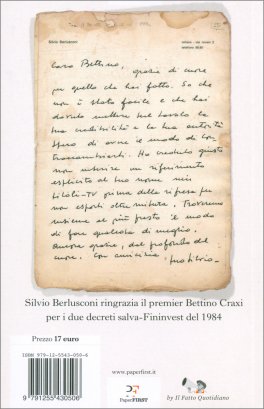 Silvio Berlusconi
Caro Bettino,
grazie di cuore
per quello che hai fatto. So che
non è stato facile e che hai
dovuto mettere sul tavolo la
tua credibilità e la tua autorità
Spero di avere il modo di con
traccambiarti. Ho creduto giusto
non inserire un riferimento
esplicito al tuo nome nei
titoli-TV prima della ripresa per
non esporti oltre misura. Troveremo
insieme al più presto il modo
di fare qualcosa di meglio.
Ancora grazie, dal profondo del
cuore. Con amicizia, tuo Silvio.
Silvio Berlusconi ringrazia il premier Bettino Craxi
per i due decreti salva-Fininvest del 1984
Prezzo 17 euro
ISBN 979-12-5543-050-6
9 791255 430506
www.paperfirst.it
PF
PaperFIRST
by Il Fatto Quotidiano